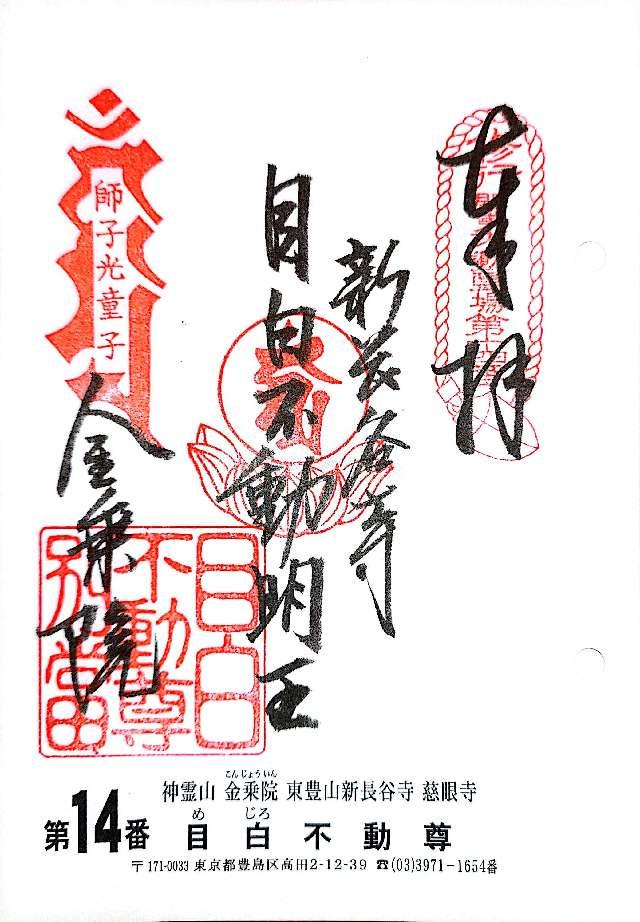 奉拝
新長谷寺
目白不動明王
師子光童子
金乗院
目白
不動尊
別當
神霊山 金乗院 東豊山新長谷寺 慈眼寺
こんじょういん
第14番 目白不動尊
めじろ
〒171-0033 東京都豊島区高田2-12-39 ☎(03)3971-1654番